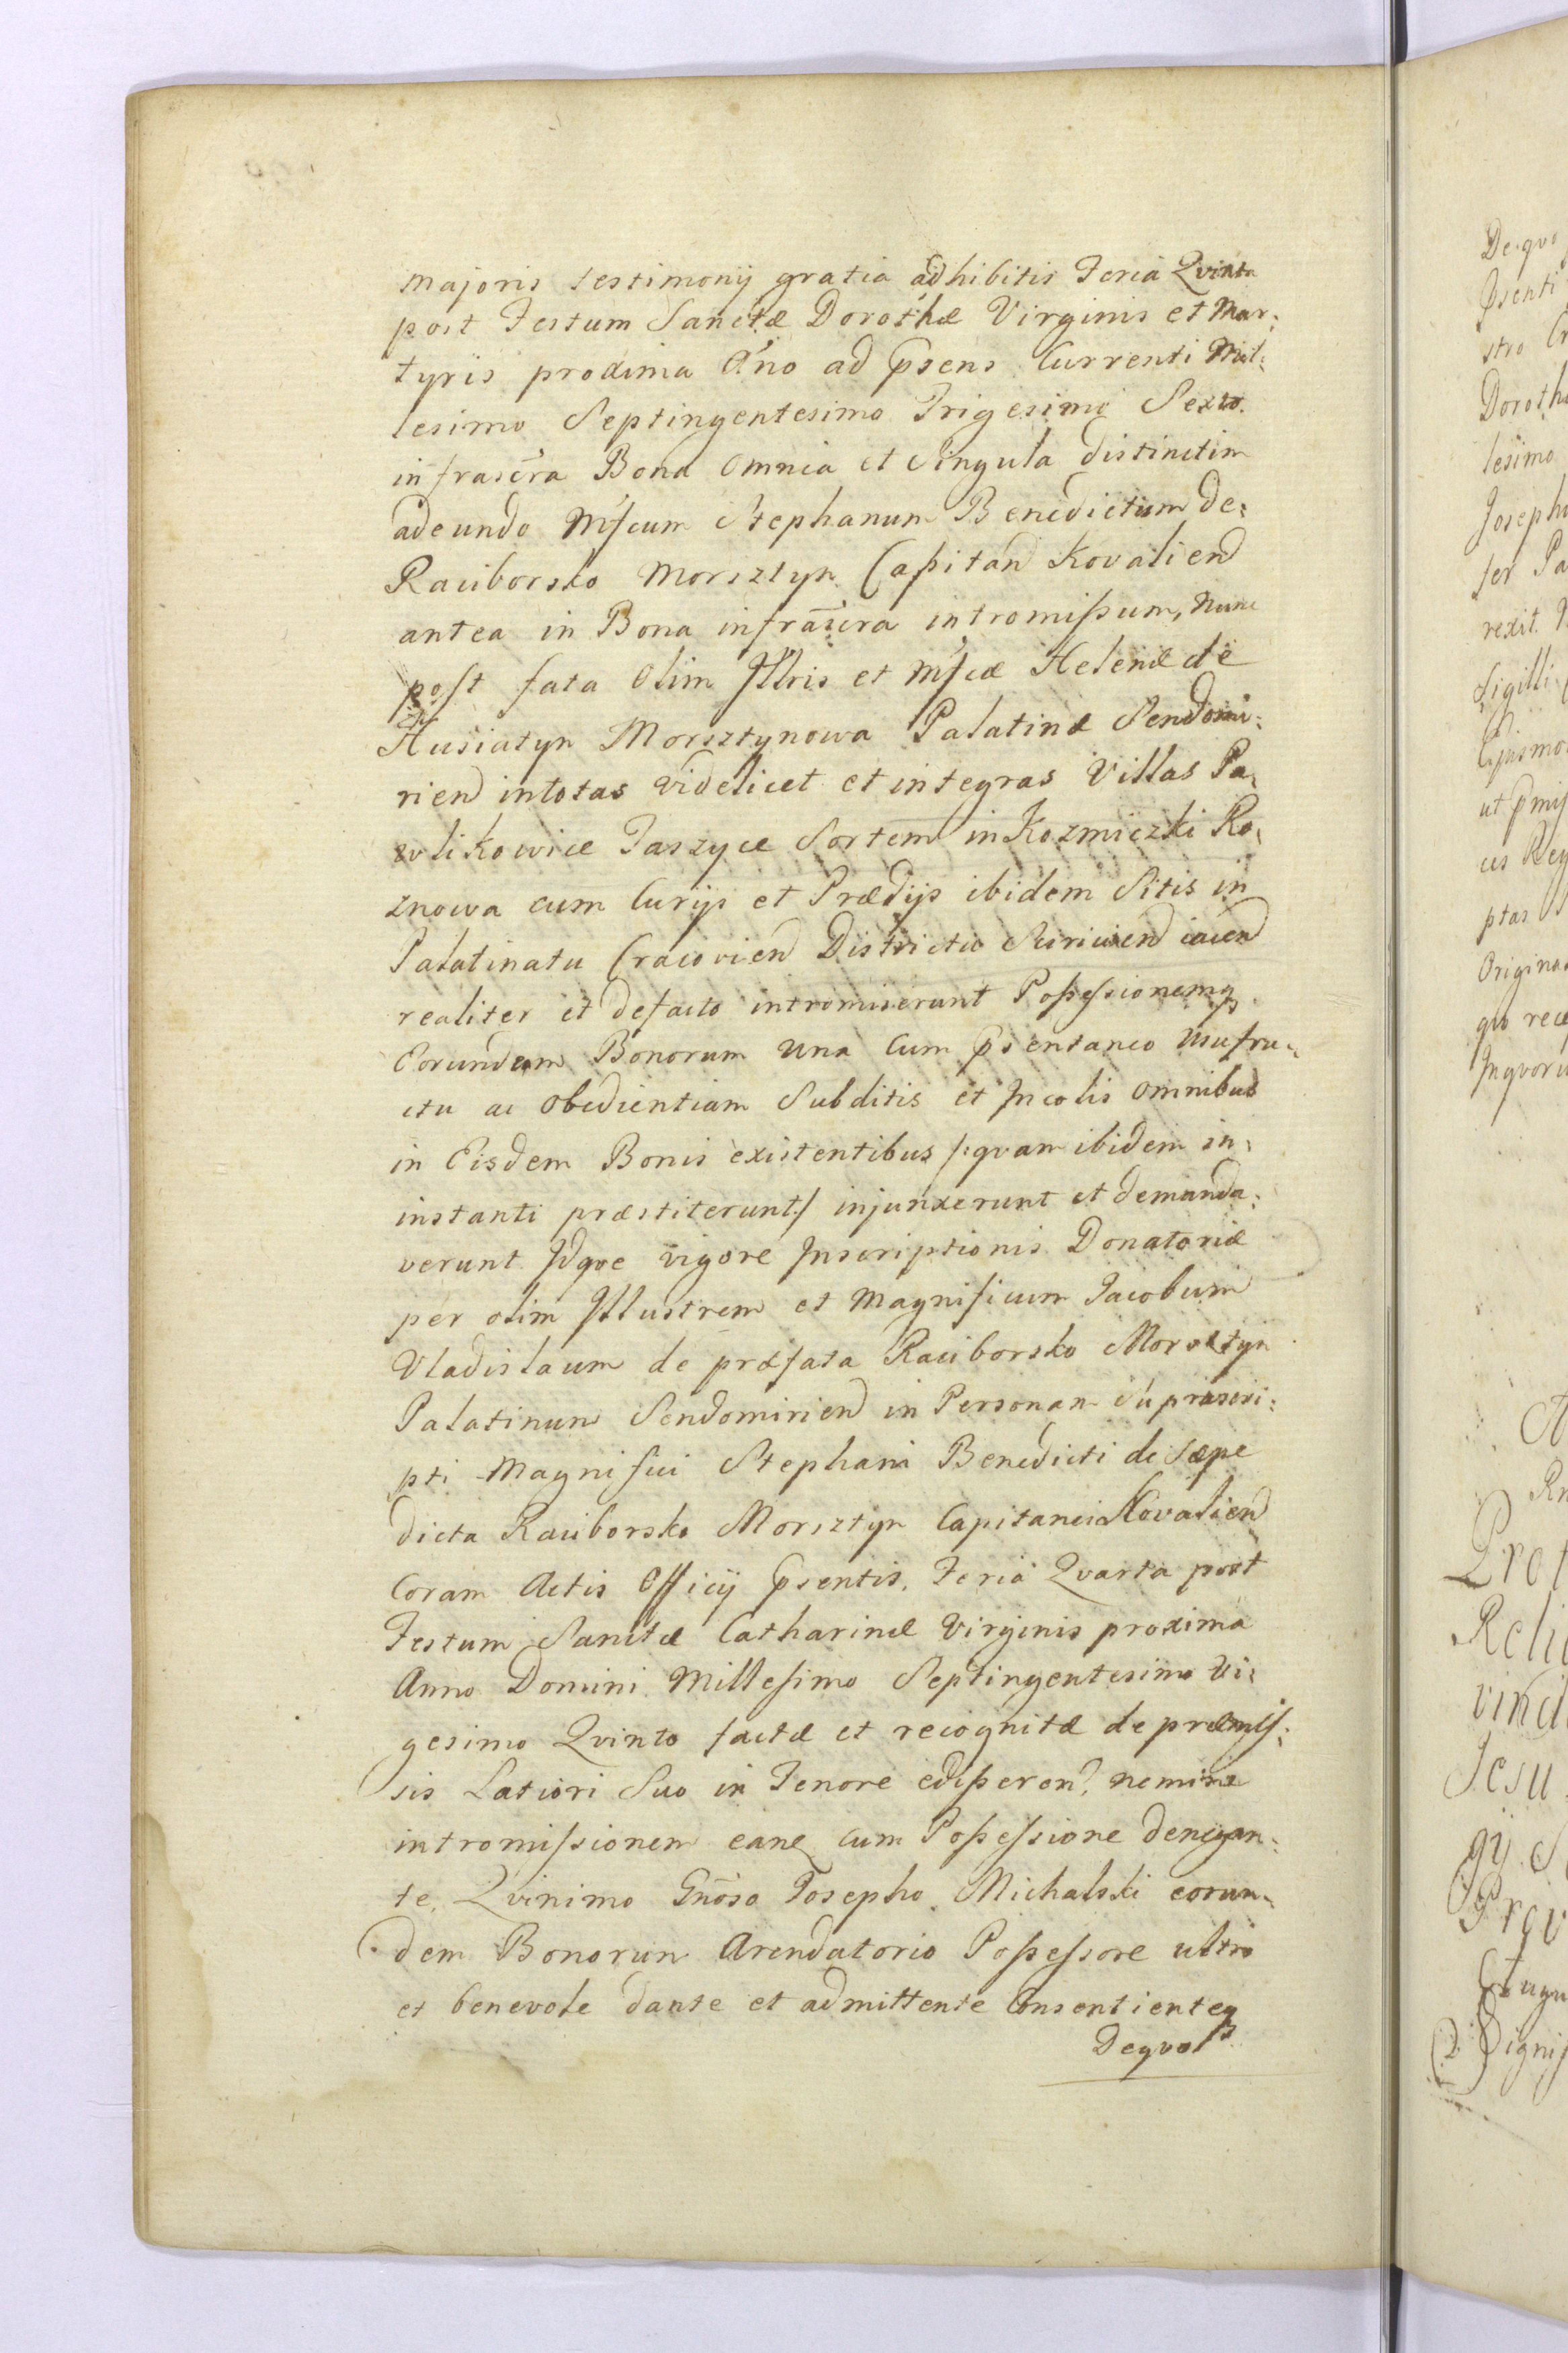 majoris testimonij gratia adhibitis Feria Qvinta
post Festum Sanctæ Dorothæ Virginis et Mar:
tyris proxima Ano ad psens Currenti Mil:
lesimo Septingentesimo Trigesimo Sexto.
infrascra Bona Omnia et Singula distinctim
adeundo Mfcum Stephanum Benedictum de:
Raciborsko Morsztyn Capitan Kovalien
antea in Bona infrascra intromissum, Nunc
post fata Olim Jllris et Mfcæ Helenæ de
Husiatyn Morsztynowa Palatinæ Sendomi:
rien intotas videlicet et integras Villas Pa:
wlikowice Taszyce Sortem in Kozmiczki Ro:
znowa cum Curijs et Prædijs ibidem Sitis in
Palatinatu Cracovien Districtu Sciricien iacen
realiter et defacto intromiserunt Possessionemq
Eorundem Bonorum una Cum psentaneo usufru:
ctu ac obedientiam Subditis et Jncolis omnibus
in Eisdem Bonis existentibus /:qvam ibidem in:
instanti præstiterunt:/ injunxerunt et demanda:
verunt. Jdqve vigore Jnscriptionis Donatoriæ
per olim Jllustrem et Magnificum Jacobum
Vladislaum de præfata Raciborsko Morsztyn
Palatinum Sendomirien in Personam Suprascri:
pti Magnifici Stephani Benedicti de Sæpe
dicta Raciborsko Morsztyn Capitanei Kovalien
Coram Actis Officij psentis. Feria Qvarta post
Festum Sanctæ Catharinæ Virginis proxima
Anno Domini Millesimo Septingentesimo Vi:
gesimo Qvinto factæ et recognitæ de præmis:
sis Latiori Suo in Tenore nemine
intromissionem eanq cum Possessione denegan:
te, Qvinimo Gnoso Josepho Michalski eorun:
dem Bonorum Arendatorio Possessore ultro
et benevole dante et admittente Consentienteq
Deqvo
De qvo
Doroth
lesimo
Joseph
ter Pa
rexit.
Sigilli
ut pmis
ces Reg
ptas
Origina
qvo rece
Jnqvoru
Relig
vind
Jesu